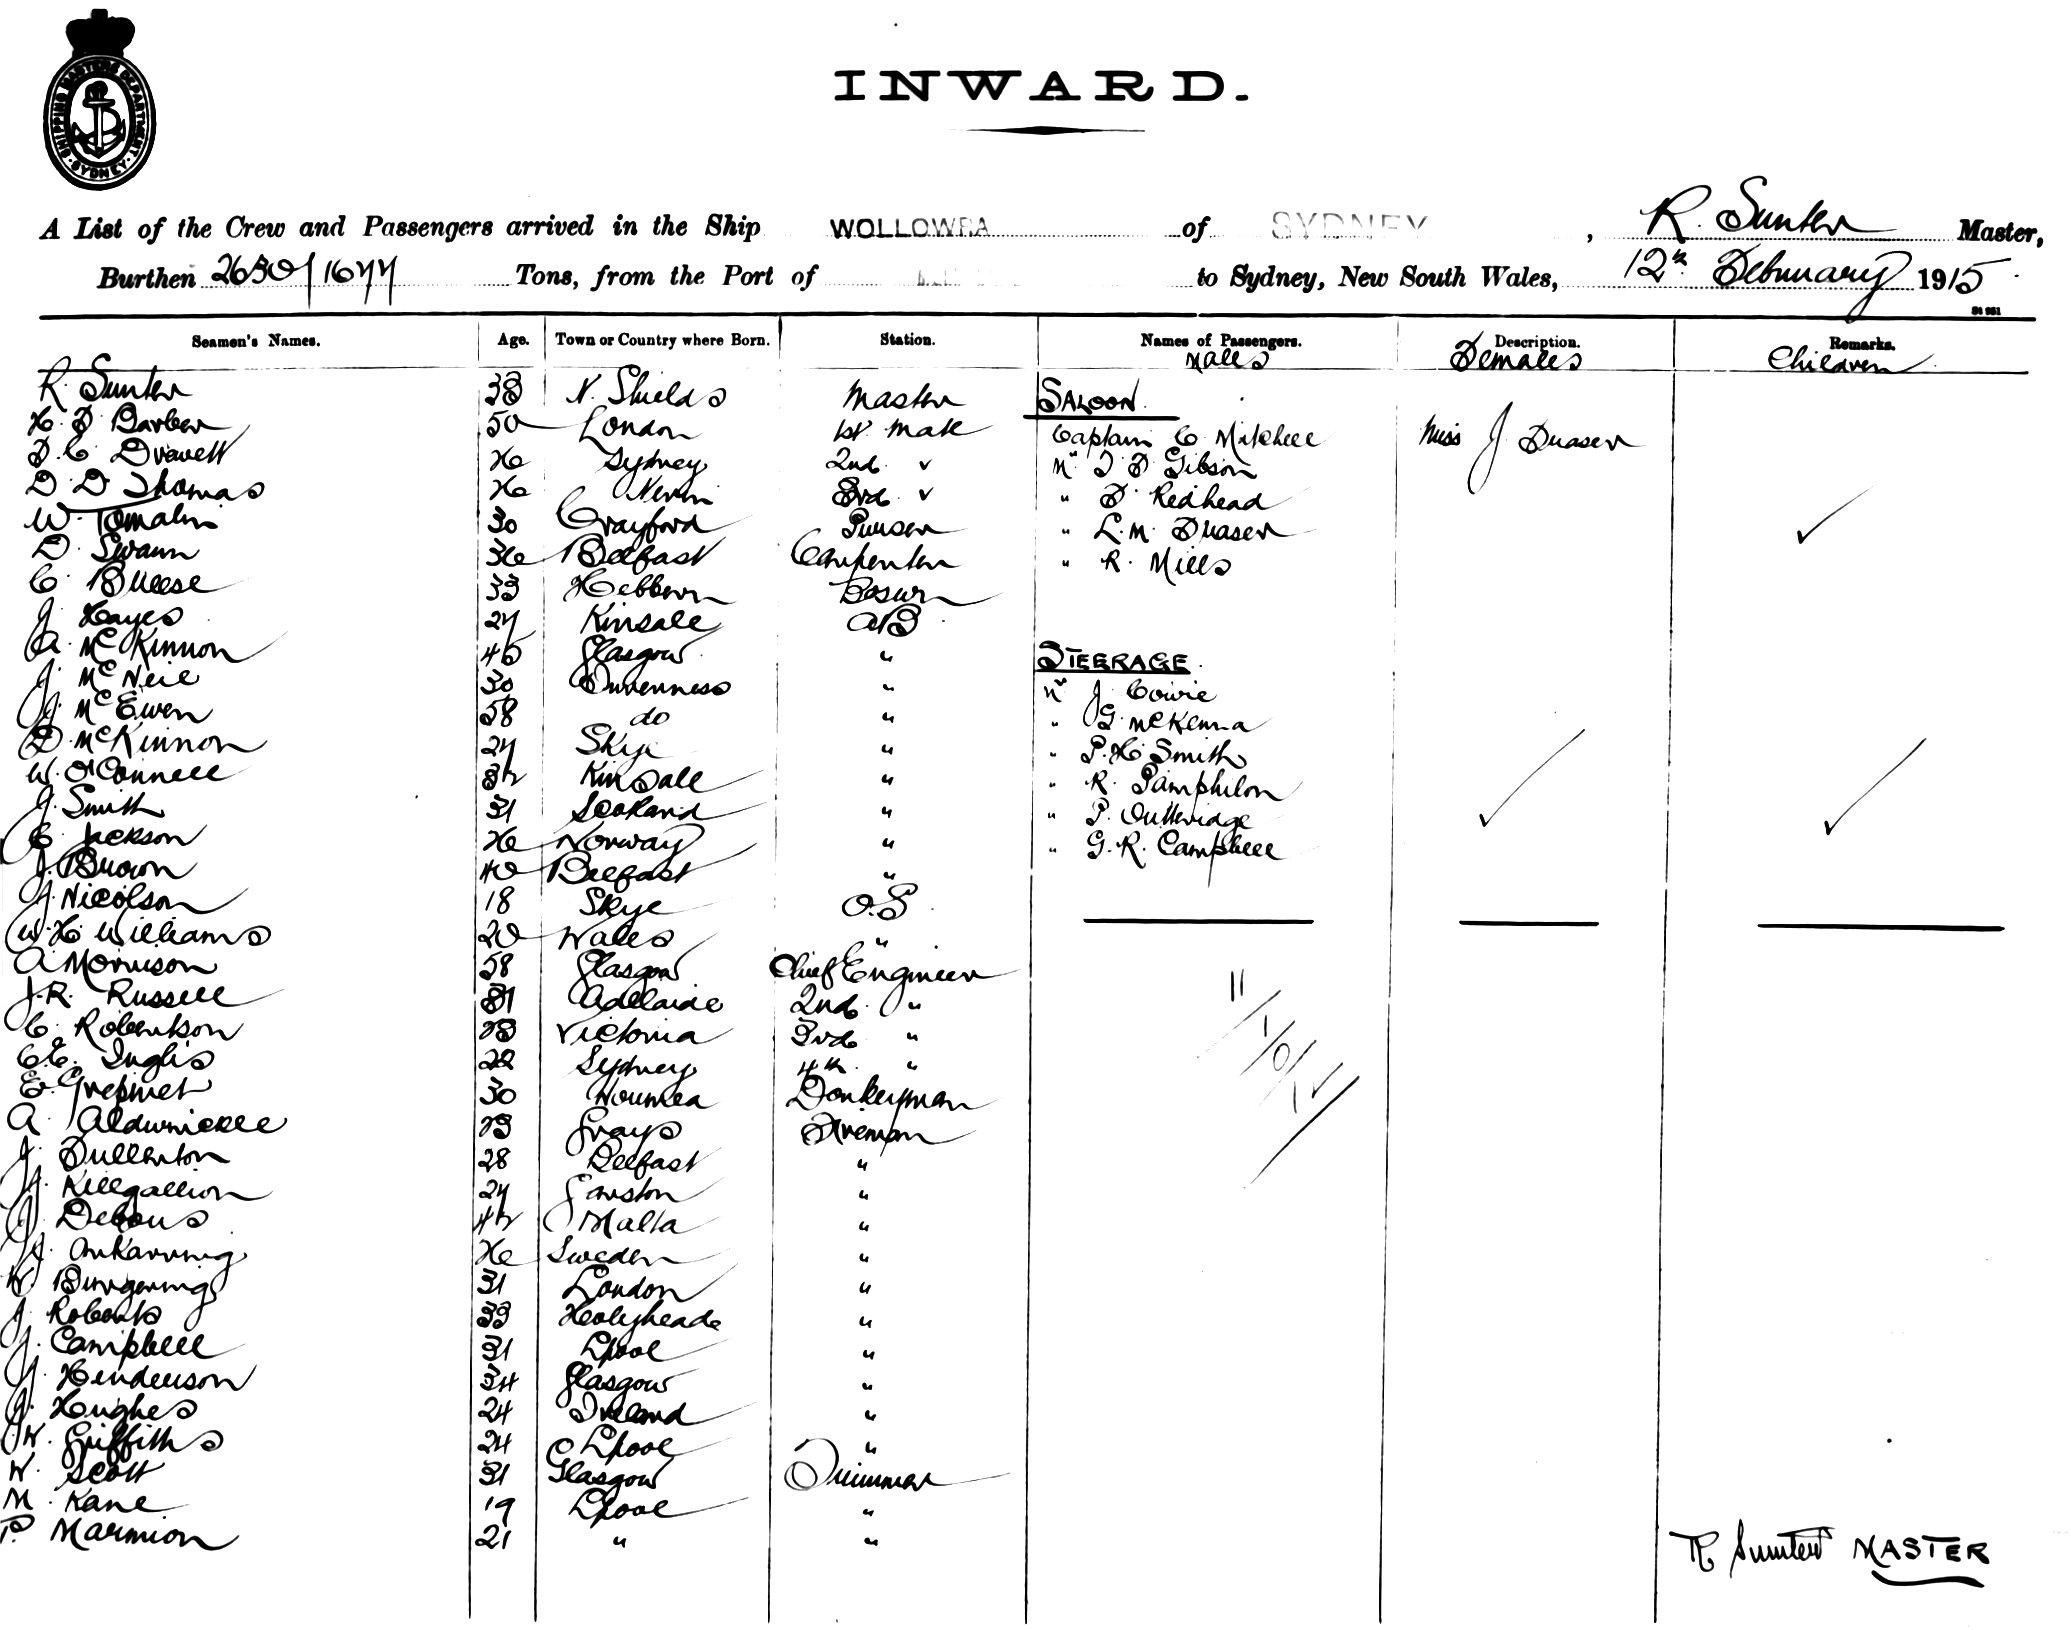 SHIPPING MASTERS DEPARTMENT. SYDNEY
INWARD.
A List of the Crew and Passengers arrived in the Ship WOLLOWRA of SYDNEY, R. Sunter Master,
Burthen 2630/1677 Tons, from the Port of to Sydney, New South Wales, 12th February 1915
Seamen's Names. Age. Town or Country where Born. Station. Names of Passengers. Description. Remarks.
Males Females Children
R. Sunter 38 N. Shields Master SALOON
H. F. Barber 50 London 1st Mate Captain C Mitchell Miss J Fraser
F. C. Dravett 26 Sydney 2nd " Mr T F Gibson
D. D Thomas 26 Nevin 3rd " " F. Redhead
W. Tomalin 30 Crayford Purser " L. M. Fraser
D. Swann 36 Belfast Carpenter " R. Mills
C. Buese 33 Hebburn Bosun
J. Hayes 27 Kinsale AB
A. McKinnon 45 Glasgow " STEERAGE.
J. McNeil 30 Inverness " Mr J Cowie
J. McEwen 58 do " " G. McKenna
D. McKinnon 27 Skye " " P. H. Smith
W. O'Connell 32 Kinsale " " R. Pamphilon
J. Smith 31 Scotland " " P. Outteridge
C. Jackson 26 Norway " " G. R. Campbell
J. Brown 40 Belfast "
J. Nicolson 18 Skye O.S
W. H Williams 20 Wales "
A Morrison 58 Glasgow Chief Engineer
J. R. Russell 31 Adelaide 2nd "
C. Robertson 23 Victoria 3rd "
C. C. Inglis 22 Sydney 4th "
E. 30 Noumea Donkeyman
A. Aldwinckle 23 Grays Fireman
J. Fullerton 28 Belfast "
J. Killgallion 27 "
J. Debous 42 Malta "
J. 26 Sweden "
W. 31 London "
J Roberts 33 Holyhead "
J. Campbell 31 Lpool "
J. Henderson 34 Glasgow "
J. Hughes 24 Ireland "
W. Griffiths 24 Lpool "
W. Scott 31 Glasgow Trimmer
M. Kane 19 Lpool "
P. Marmion 21 " "
11/1/0/12
R Sunter MASTER